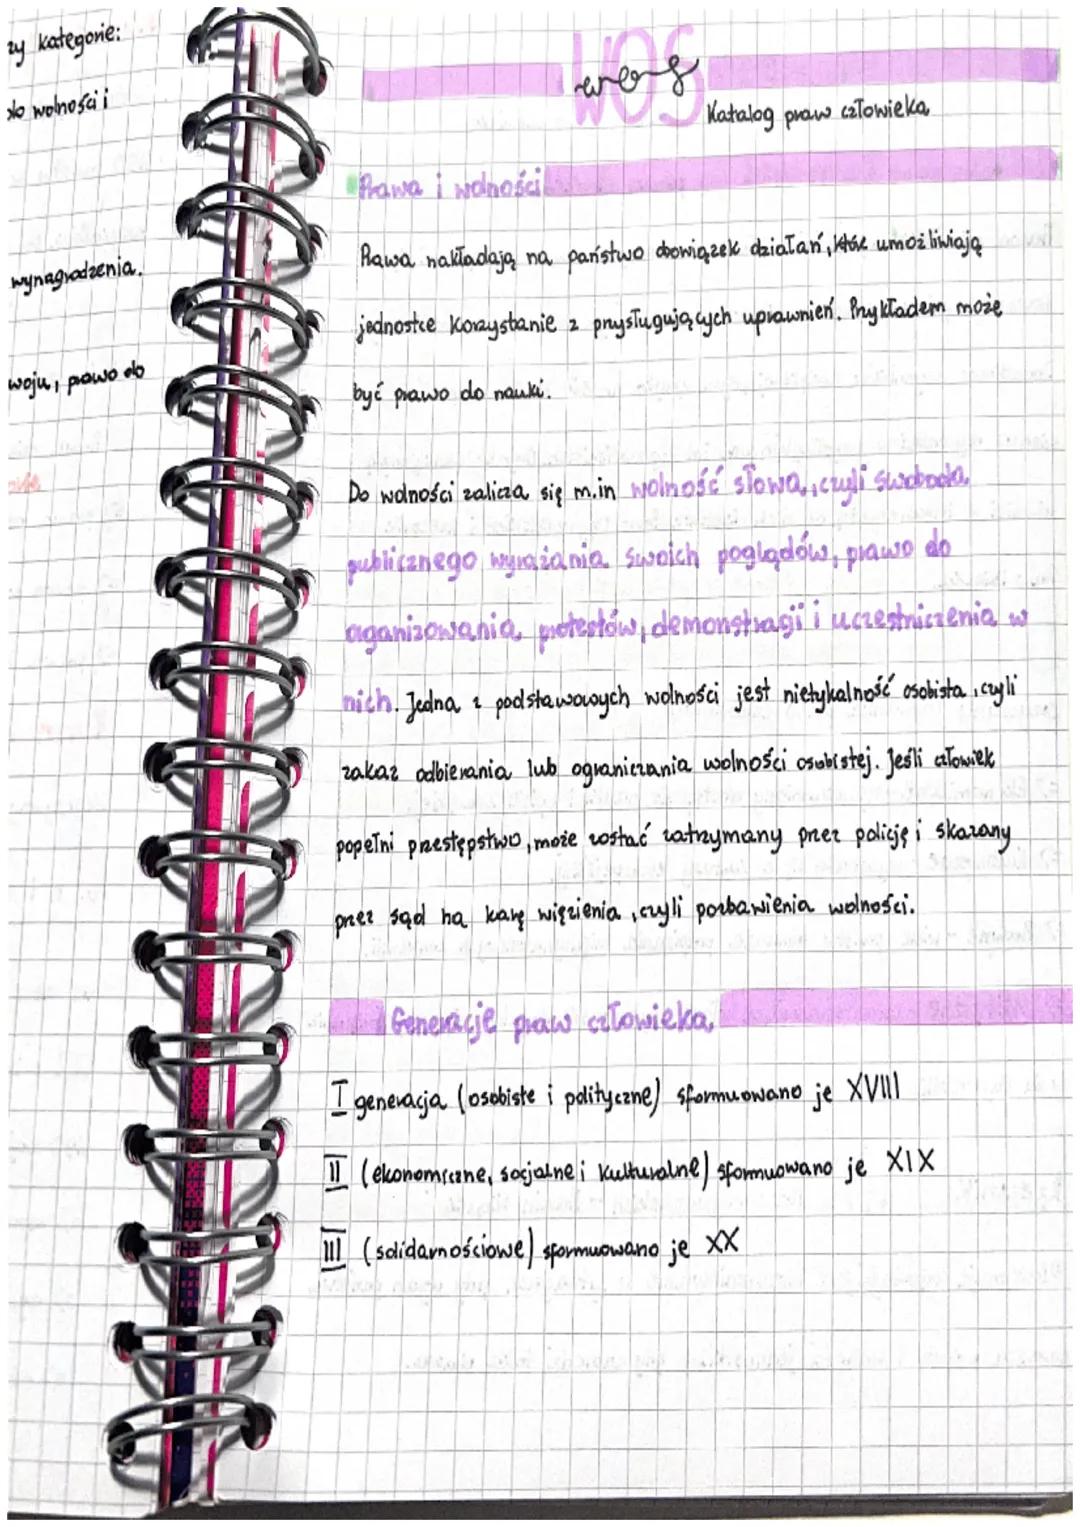 zy kategorie:
do wolności i
wynagrodzenia.
woju, prawo do
WOS
wos
Katalog praw człowieka
Prawa i wolności
Prawa nakładają na państwo obowiązek działań, które umożliwiają
jednostce korzystanie z przysługujących uprawnień. Przykładem może
być prawo do nauki.
Do wolności zalicza się m.in wolność słowa, czyli swoboda
publicznego wyrażania swoich poglądów, prawo do
organizowania protestów, demonstracji i uczestniczenia w
nich. Jedną z podstawowych wolności jest nietykalność osobista, czyli
zakaz odbierania lub ograniczania wolności osobistej. Jeśli człowiek
popełni przestępstwo, może zostać zatrzymany przez policję i skazany
przez sąd na karę więzienia, czyli pozbawienia wolności.
Generacje praw człowieka
I generacja (osobiste i polityczne) sformuowano je XVIII
II (ekonomiczne, socjalne i kulturalne) sformuowano je XIX
III (solidarnościowe) sformuowano je XX